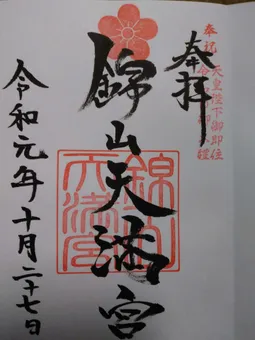 奉祝 天皇陛下御即位
奉拝
錦山天満宮
錦山天満宮
令和元年十月二十七日